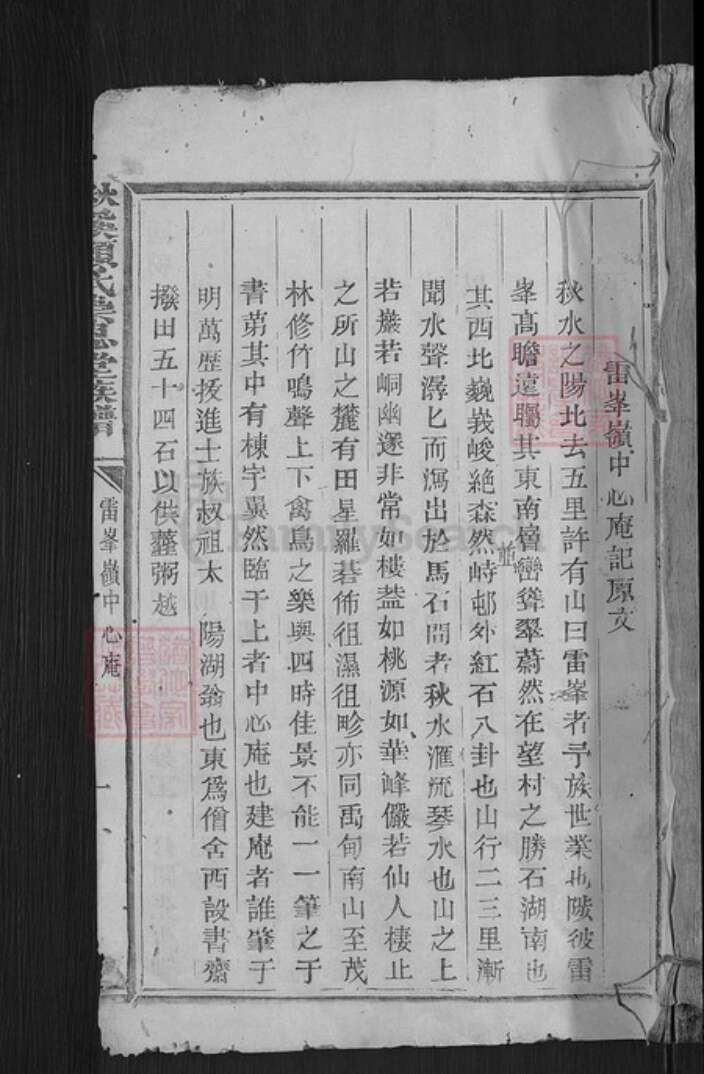 雷峯嶺中心庵記原文
秋水之陽北去五里許有山曰雷峯者予族世業也陟彼雷
峯髙瞻遠矚其東南層巒聳翠蔚然在望村之勝石湖南也
其西北巍峩峻絶森然峙並邨外紅石八卦也山行二三里漸
聞水聲潺匕而瀉出於馬石間者秋水滙流琴水也山之上
若巖若峒幽邃非常如樓葢如桃源如華峰儼若仙人棲止
之所山之麓有田星羅碁佈徂濕徂畛亦同禹甸南山至茂
林修竹鳴聲上下禽鳥之樂與四時佳景不能一一筆之于
書苐其中有棟宇翼然臨于上者中心庵也建庵者誰肇于
明萬歴授進士族叔祖太 陽湖翁也東爲僧舍西設書齋
撥田五十四石以供虀粥越
秋溪 氏 思堂族譜
雷峯嶺中心庵
一